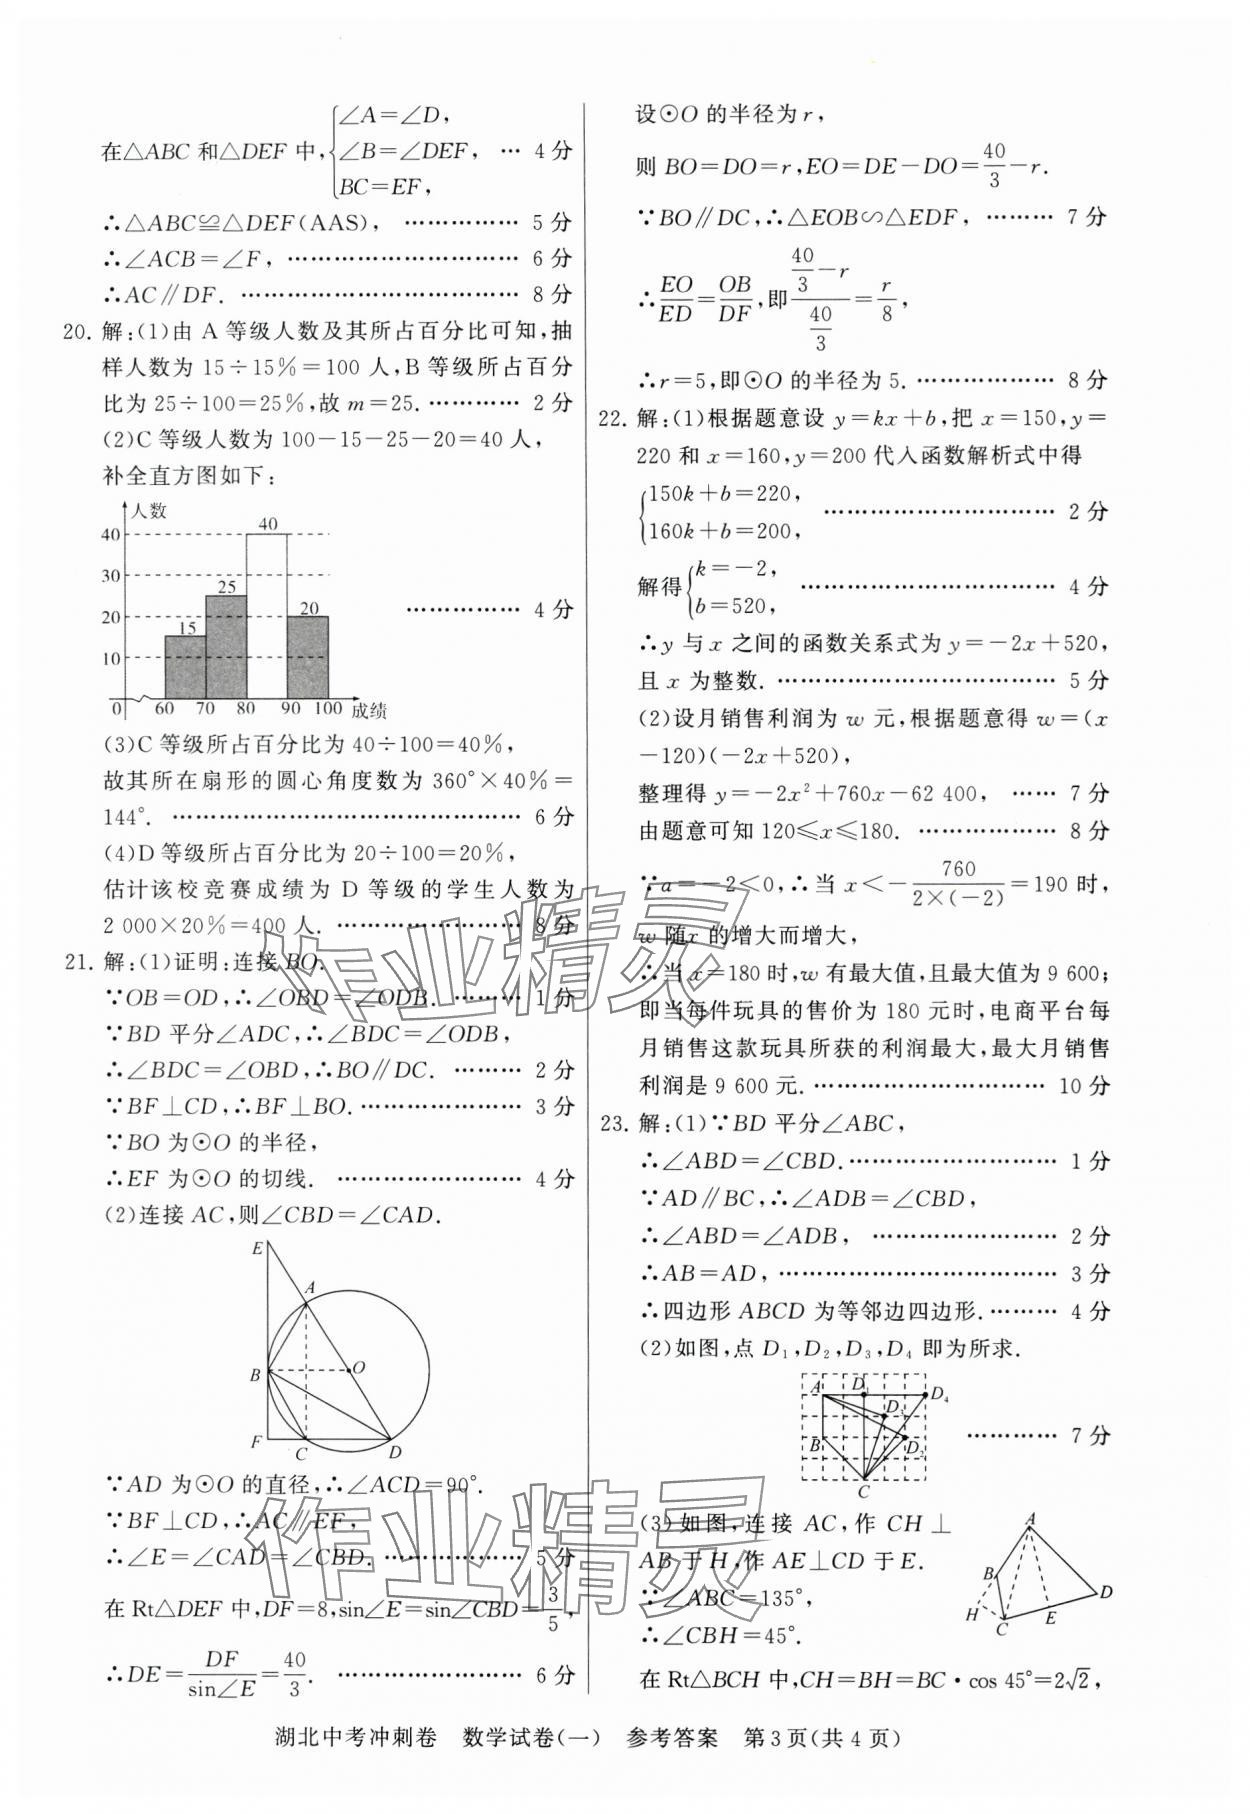 在△ABC 和△DEF 中,{∠A=∠D,
∠B=∠DEF, … 4 分
BC=EF,
∴△ABC≌△DEF(AAS), …………… 5 分
∴∠ACB=∠F, ………………………… 6 分
∴AC∥DF. ……………………………… 8 分
20. 解:(1)由 A 等级人数及其所占百分比可知,抽
样人数为 15÷15%=100 人,B 等级所占百分
比为 25÷100=25%,故 m=25. ………… 2 分
(2)C 等级人数为 100-15-25-20=40 人,
补全直方图如下:
人数
40
30
20
10
0
15
25
40
20
60 70 80 90 100 成绩
…………… 4 分
(3)C 等级所占百分比为 40÷100=40%,
故其所在扇形的圆心角度数为 360°×40%=
144°. ……………………………………… 6 分
(4)D 等级所占百分比为 20÷100=20%,
估计该校竞赛成绩为 D 等级的学生人数为
2 000×20%=400 人. …………………… 8 分
21. 解:(1)证明:连接 BO.
∵OB=OD,∴∠OBD=∠ODB. ……… 1 分
∵BD 平分∠ADC,∴∠BDC=∠ODB,
∴∠BDC=∠OBD,∴BO∥DC. ……… 2 分
∵BF⊥CD,∴BF⊥BO. ………………… 3 分
∵BO 为⊙O 的半径,
∴EF 为⊙O 的切线. …………………… 4 分
(2)连接 AC,则∠CBD=∠CAD.
E
A
B
O
F
C
D
∵AD 为⊙O 的直径,∴∠ACD=90°.
∵BF⊥CD,∴AC∥EF,
∴∠E=∠CAD=∠CBD. ……………… 5 分
在 Rt△DEF 中,DF=8,sin∠E=sin∠CBD=3/5,
∴DE=DF/sin∠E=40/3. …………………… 6 分
设⊙O 的半径为 r,
则 BO=DO=r,EO=DE-DO=40/3-r.
∵BO∥DC,∴△EOB∽△EDF, ……… 7 分
∴EO/ED=OB/DF,即(40/3-r)/(40/3)=r/8,
∴r=5,即⊙O 的半径为 5. ……………… 8 分
22. 解:(1)根据题意设 y=kx+b,把 x=150,y=
220 和 x=160,y=200 代入函数解析式中得
{150k+b=220,
160k+b=200, ………………………… 2 分
解得{k=-2,
b=520, …………………………… 4 分
∴y 与 x 之间的函数关系式为 y=-2x+520,
且 x 为整数. ……………………………… 5 分
(2)设月销售利润为 w 元,根据题意得 w=(x
-120)(-2x+520),
整理得 y=-2x²+760x-62 400, …… 7 分
由题意可知 120≤x≤180. ……………… 8 分
∵a=-2<0,∴当 x<-760/(2×(-2))=190 时,
w 随x 的增大而增大,
∴当 x=180 时,w 有最大值,且最大值为 9 600;
即当每件玩具的售价为 180 元时,电商平台每
月销售这款玩具所获的利润最大,最大月销售
利润是 9 600 元. ………………………… 10 分
23. 解:(1)∵BD 平分∠ABC,
∴∠ABD=∠CBD. ……………………… 1 分
∵AD∥BC,∴∠ADB=∠CBD,
∴∠ABD=∠ADB, …………………… 2 分
∴AB=AD, ……………………………… 3 分
∴四边形 ABCD 为等邻边四边形. ……… 4 分
(2)如图,点 D₁,D₂,D₃,D₄ 即为所求.
A
D₁
D₄
D₃
B
D₂
C
………… 7 分
(3)如图,连接 AC,作 CH⊥
AB 于 H,作 AE⊥CD 于 E.
∵∠ABC=135°,
∴∠CBH=45°.
A
B
D
H
C
E
在 Rt△BCH 中,CH=BH=BC·cos 45°=2√2,
湖北中考冲刺卷 数学试卷(一) 参考答案 第 3 页(共 4 页)
作业精灵
作业精灵